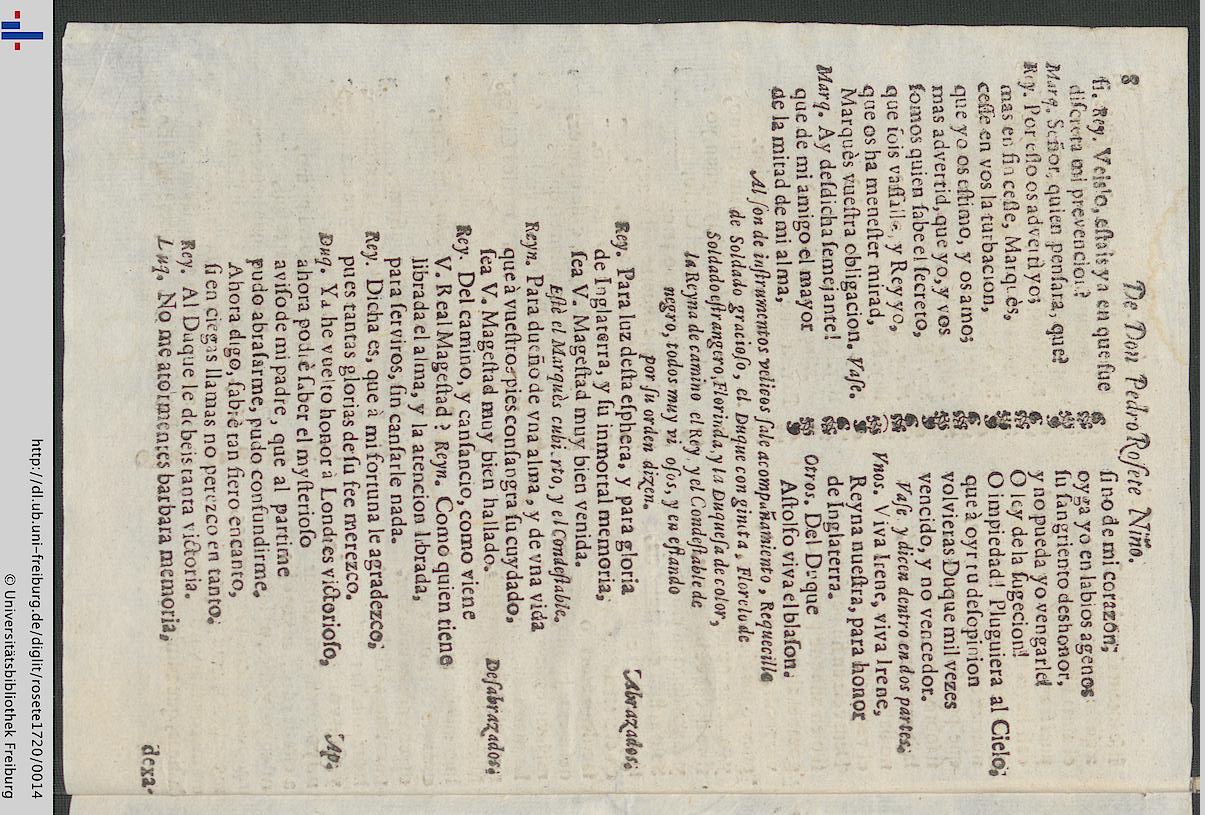 8
De Don Pedro Rosete Niño.
ſi. Rey. Veislo, eſtais ya en que fue
diſcreta mi prevencion?
Marq. Señor, quien penſara, que?
Rey. Por eſſo os advertì yo;
mas en fin ceſſe, Marquès,
ceſſe en vos la turbacion,
que yo os eſtimo, y os amo;
mas advertid, que yo, y vos
ſomos quien ſabe el ſecreto,
que ſois vaſſallo, y Rey yo,
que os ha meneſter mirad,
Marquès vueſtra obligacion. Vaſe.
Marq. Ay deſdicha ſemejante!
que de mi amigo el mayor
de la mitad de mi alma,
ſino de mi corazòn,
oyga yo en labios agenos
ſu ſangriento deshonor,
y no pueda yo vengarle!
O ley de la ſugecion!
O impiedad! Pluguiera al Cielo,
que à oyr tu deſopinion
volvieras Duque mil vezes
vencido, y no vencedor.
Vaſe y dicen dentro en dos partes.
Vnos. Viva Irene, viva Irene,
Reyna nueſtra, para honor
de Inglaterra.
Otros. Del Duque
Aſtolfo viva el blaſon.
Al ſon de inſtrumentos velicos ſale acompañamiento, Requecillo
de Soldado gracioſo, el Duque con gineta, Florelo de
Soldado eſtrangero, Florinda, y la Duqueſa de color,
la Reyna de camino el Rey y el Condeſtable de
negro, todos muy vi oſos, y en eſtando
por ſu orden dizen.
Rey. Para luz deſta eſphera, y para gloria
de Inglaterra, y ſu inmortal memoria,
ſea V. Mageſtad muy bien venida. Abrazados.
Eſtè el Marquès cubierto, y el Condeſtable.
Reyn. Para dueño de vna alma, y de vna vida
que à vueſtros pies conſagra ſu cuydado,
ſea V. Mageſtad muy bien hallado. Deſabrazados.
Rey. Del camino, y canſancio, como viene
V. Real Mageſtad? Reyn. Como quien tiene
librada el alma, y la atencion librada,
para ſerviros, ſin canſarle nada.
Rey. Dicha es, que à mi fortuna le agradezco,
pues tantas glorias de ſu fee merezco.
Duq. Ya he vuelto honor à Londres victorioſo, Ap.
ahora podrè ſaber el myſterioſo
aviſo de mi padre, que al partirme
pudo abraſarme, pudo confundirme.
Ahora digo, ſabrè tan fiero encanto,
ſi en ciegas llamas no perezco en tanto.
Rey. Al Duque le debeis tanta victoria.
Luq. No me atormentes barbara memoria,
dexa-
http://dl.ub.uni-freiburg.de/diglit/rosete1720/0014
© Universitätsbibliothek Freiburg